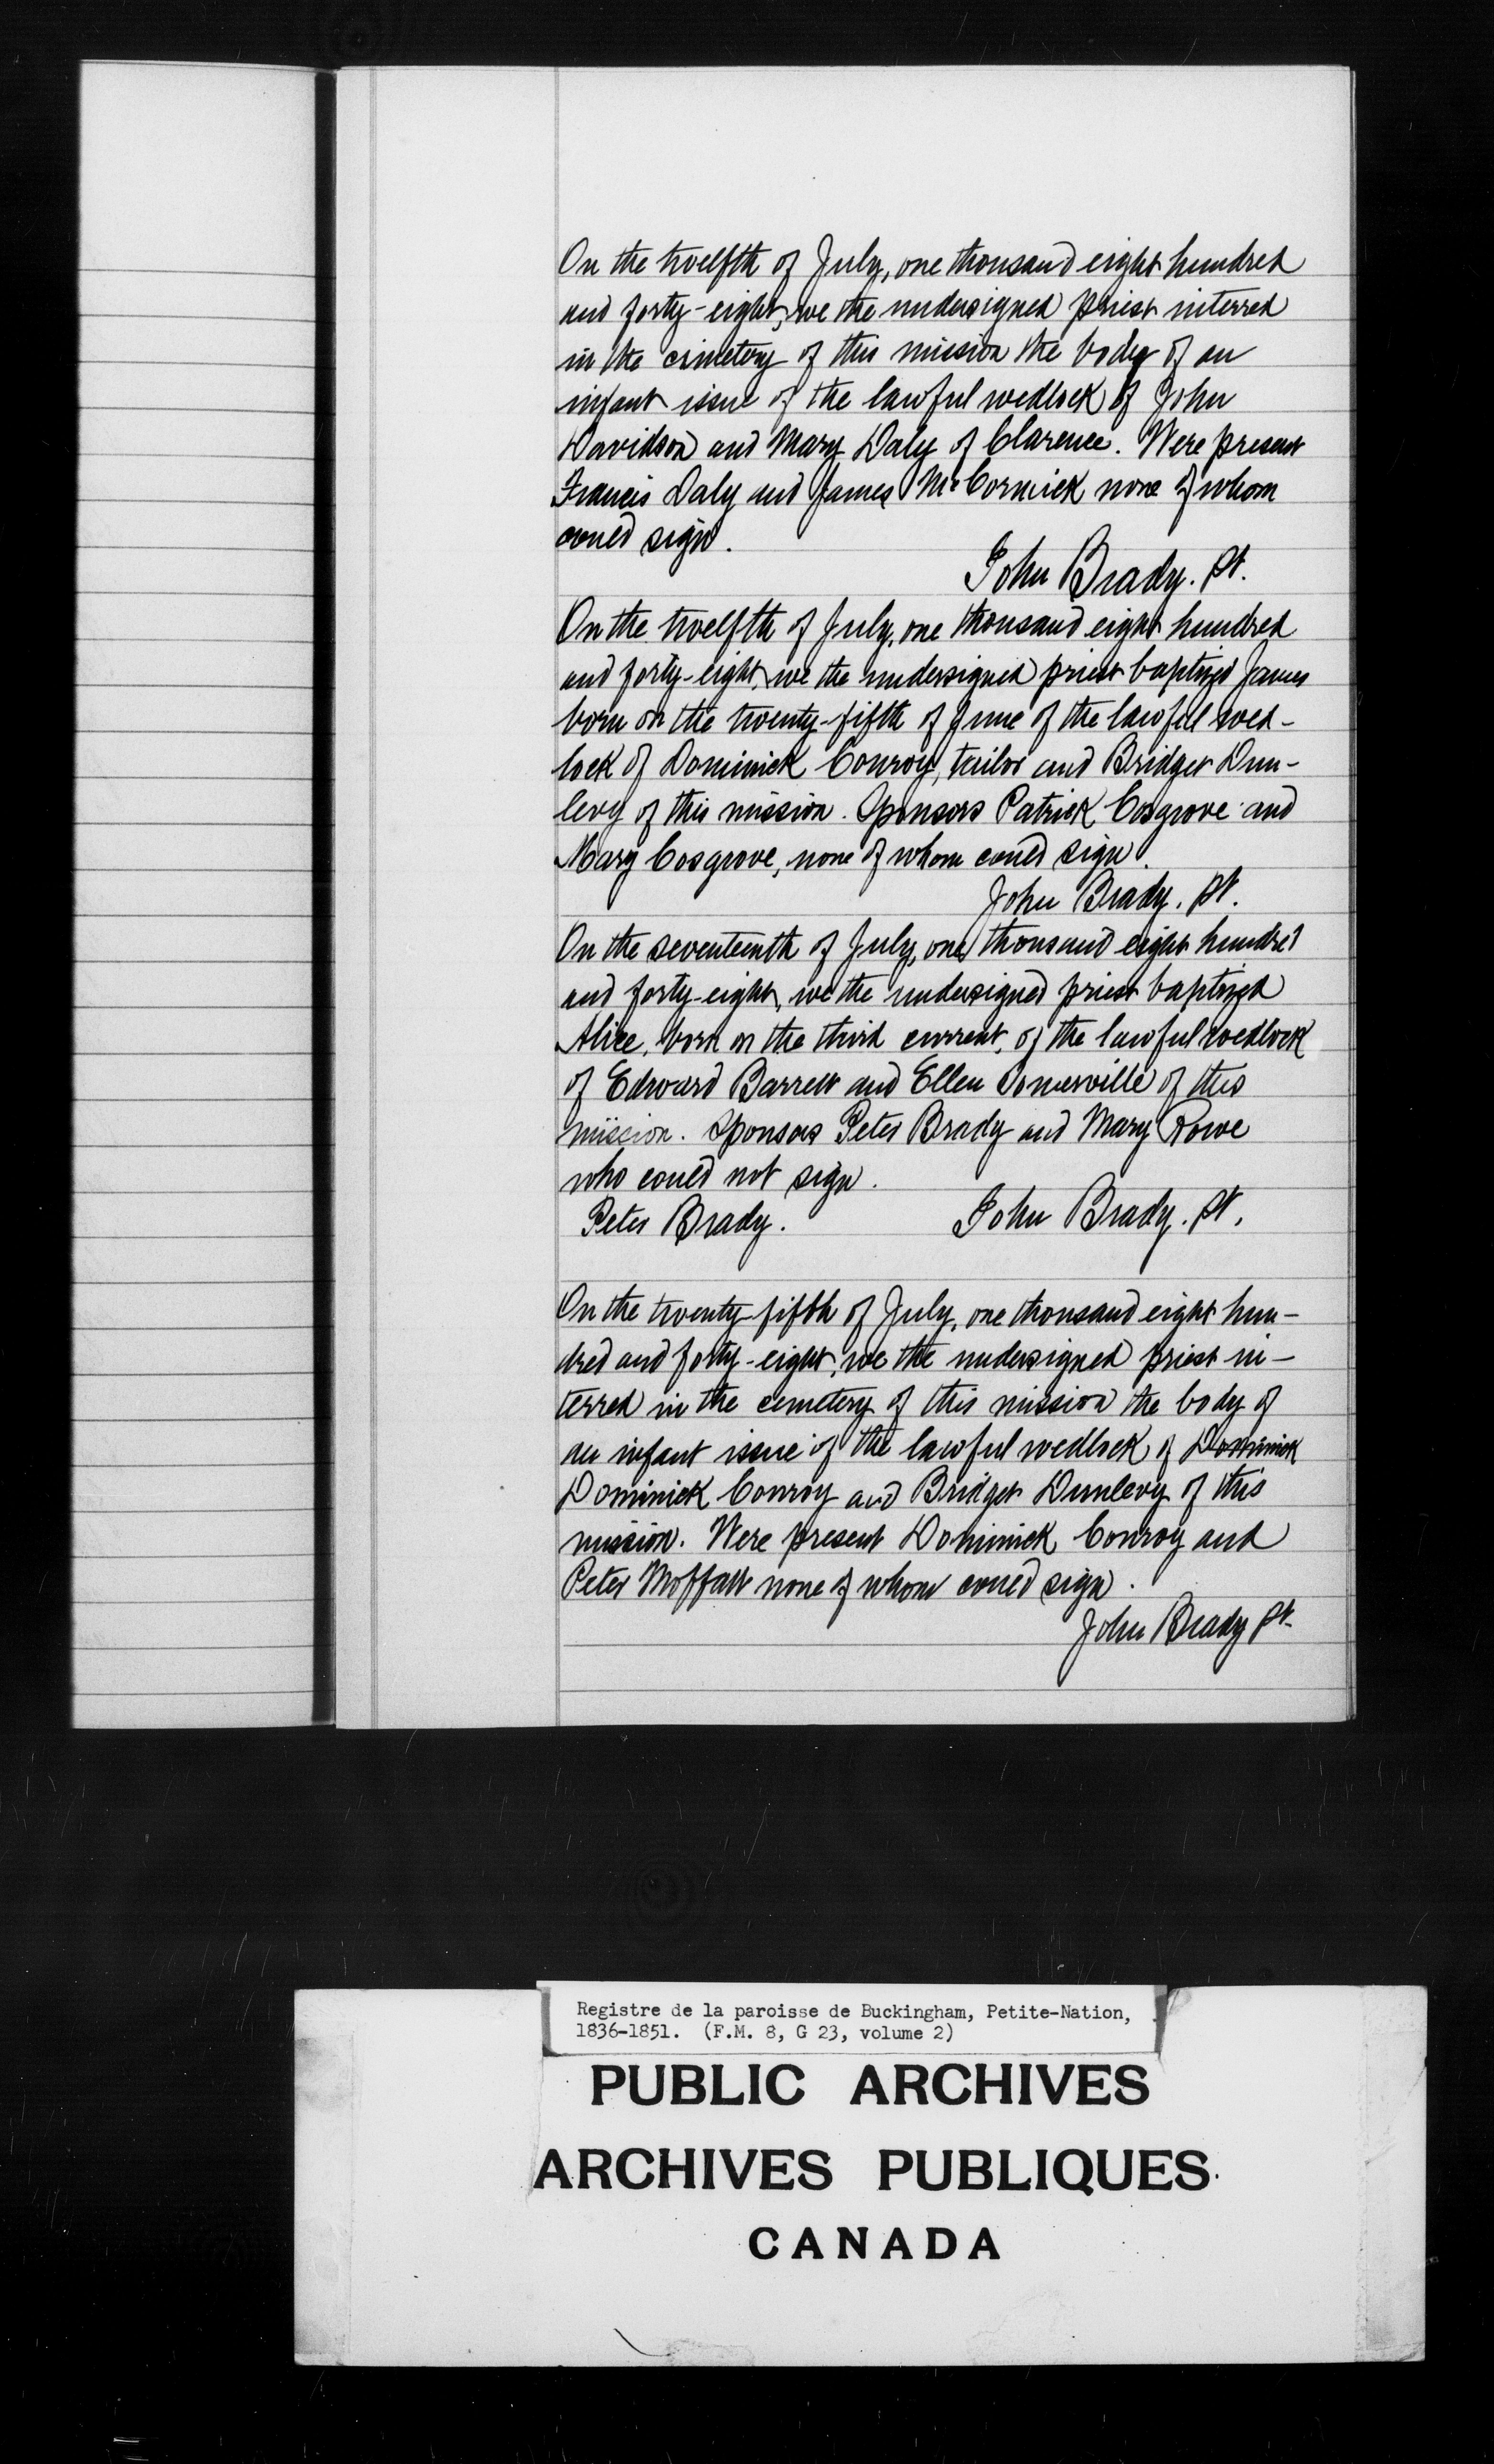 On the twelfth of July, one thousand eight hundred
and forty-eight, we the undersigned priest interred
in the cimetery of this mission the body of an
infant issue of the lawful wedlock of John
Davidson and Mary Daly of Clarence. Were present
Francis Daly and James McCormick none of whom
could sign.
John Brady. pt.
On the twelfth of July, one thousand eight hundred
and forty-eight, we the undersigned priest baptized James
born on the twenty-fifth of June of the lawful wed-
lock of Dominick Conroy, tailor and Bridget Dun-
levy of this mission. Sponsors Patrick Cosgrove and
Mary Cosgrove, none of whom could sign.
John Brady. pt.
On the seventeenth of July, one thousand eight hundred
and forty-eight, we the undersigned priest baptized
Alice, born on the third current, of the lawful wedlock
of Edward Barrett and Ellen Somerville of this
mission. Sponsors Peter Brady and Mary Rowe
who could not sign.
Peter Brady. John Brady. pt.
On the twenty-fifth of July, one thousand eight hun-
dred and forty-eight, we the undersigned priest in-
terred in the cemetery of this mission the body of
an infant issue of the lawful wedlock of Dominick
Dominick Conroy and Bridget Dunlevy of this
mission. Were present Dominick Conroy and
Peter Moffatt none of whom could sign.
John Brady pt.
Registre de la paroisse de Buckingham, Petite-Nation,
1836-1851. (F.M. 8, G 23, volume 2)
PUBLIC ARCHIVES
ARCHIVES PUBLIQUES
CANADA